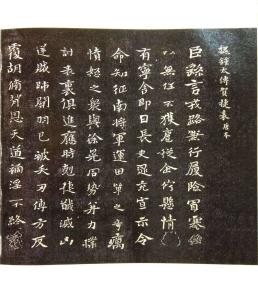 鍾太傅賀捷表唐本
臣繇言戎路兼行履險冒寒臣
以無任不獲扈從企佇懸情無
有寧舍即日長史逯充宣示令
命知征南將軍運田單之奇厲
憤怒之衆與徐晃同勢并力撲
討表裏俱進應時剋捷馘滅凶
逆賊帥關羽已被矢刃傅方反
覆胡脩背恩天道禍淫不終厥